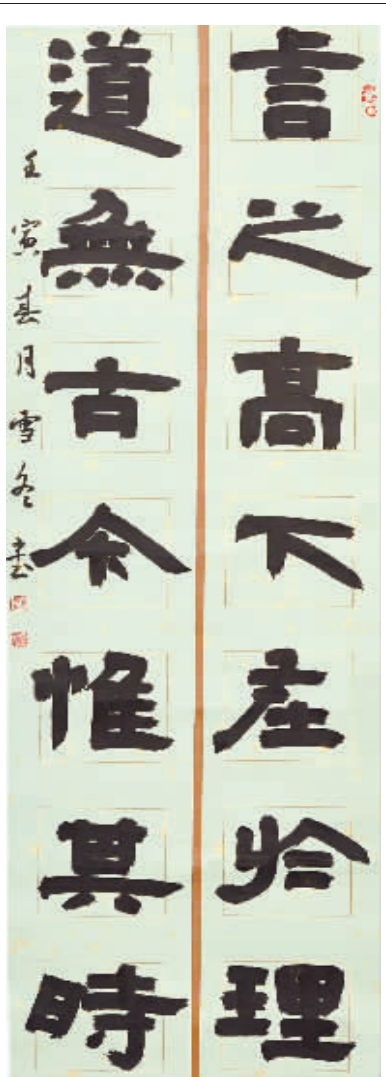 言之高下在於理
道無古今惟其時
壬寅春月雪冬書